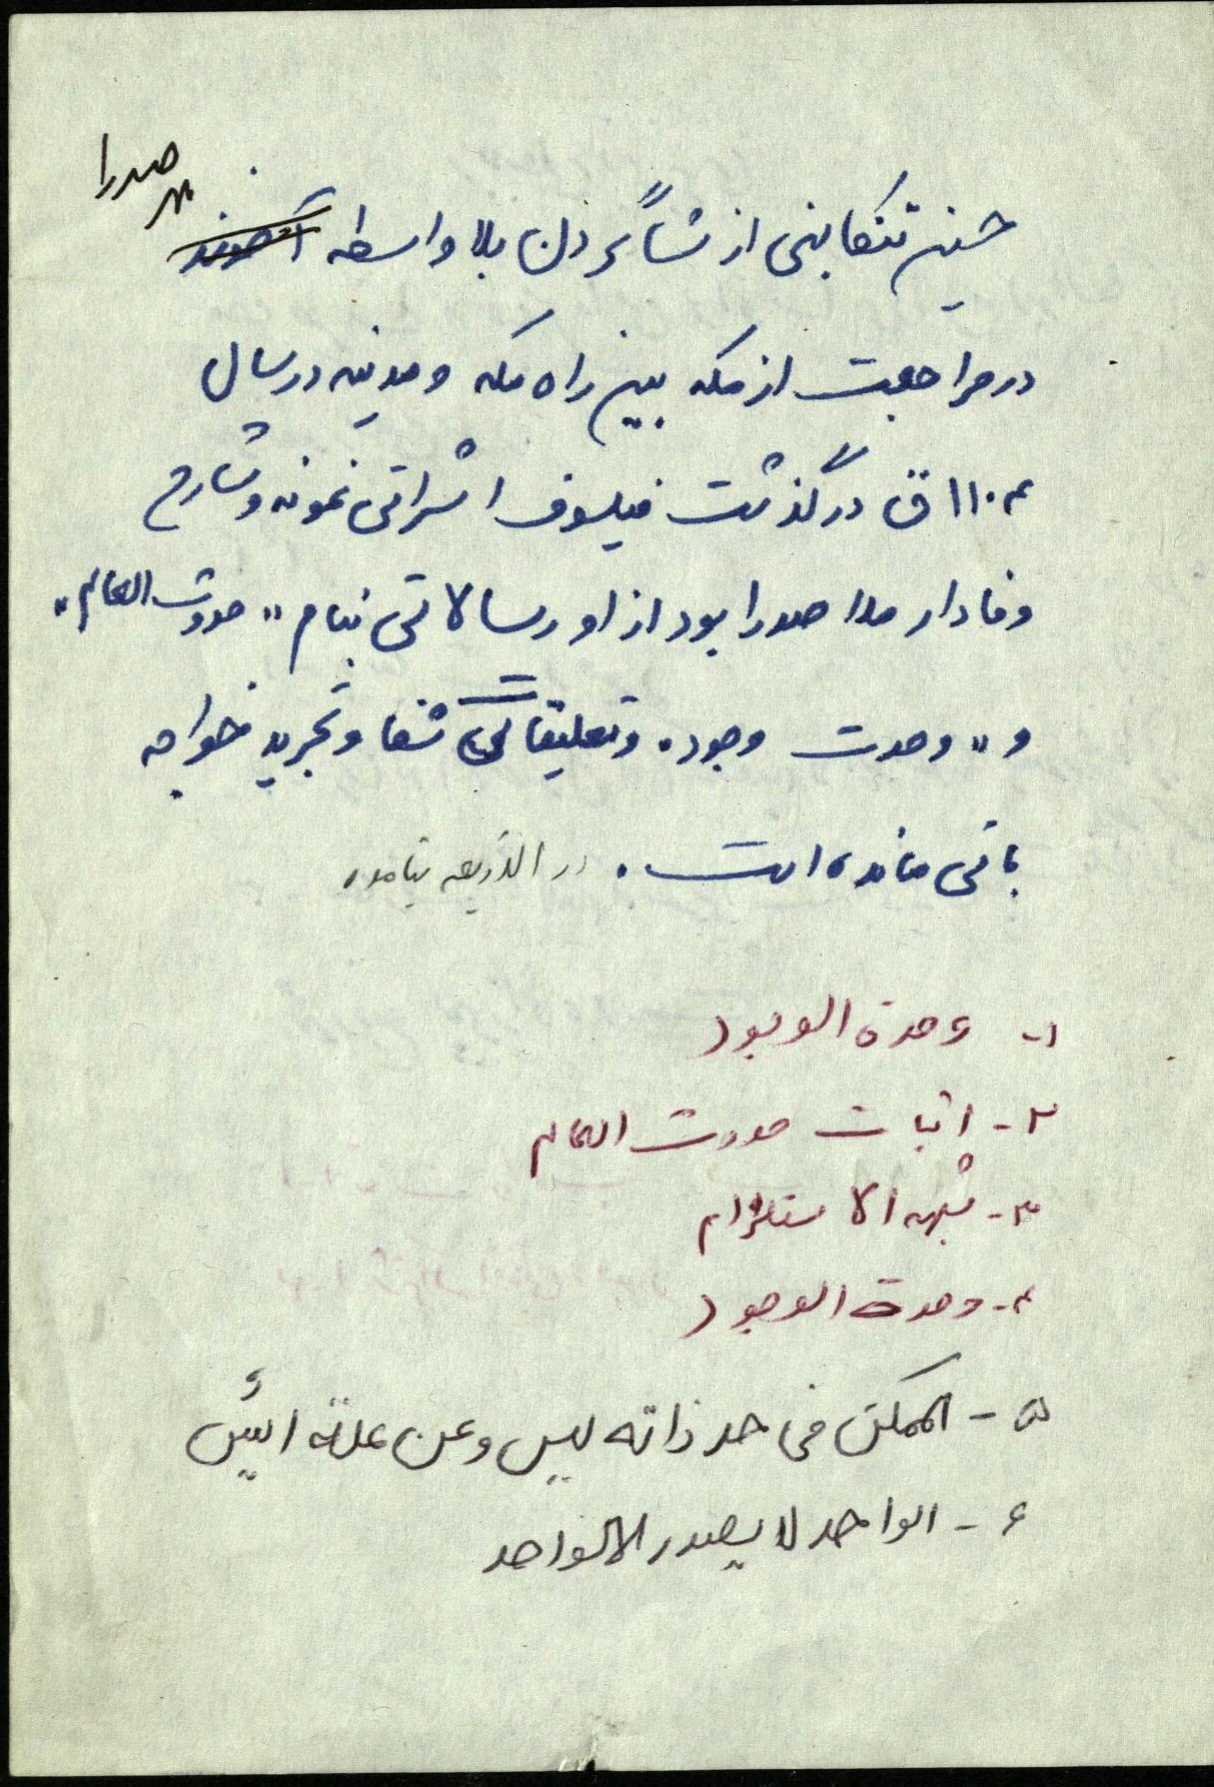 صدرا
حسین تنکابنی از شاگردان بلا واسطه آخوند
در مراجعت از مکه بین راه مکه و مدینه در سال
۱۱۰۴ ق درگذشت فیلسوف اشراقی نمونه و شارح
وفادار ملا صدرا بود از او رسالاتی بنام "حدوث العالم"
و "وحدت وجود" و تعلیقاتی شفا و تجرید خواجه
باقی مانده است. در الذریعه نیامده
۱- وحدة الوجود
۲- اثبات حدوث العالم
۳- شبهه الاستلزام
۴- وحدة الوجود
۵- الممکن فی حد ذاته لیس و عن علته ایس
۶- الواحد لا یصدر الا الواحد